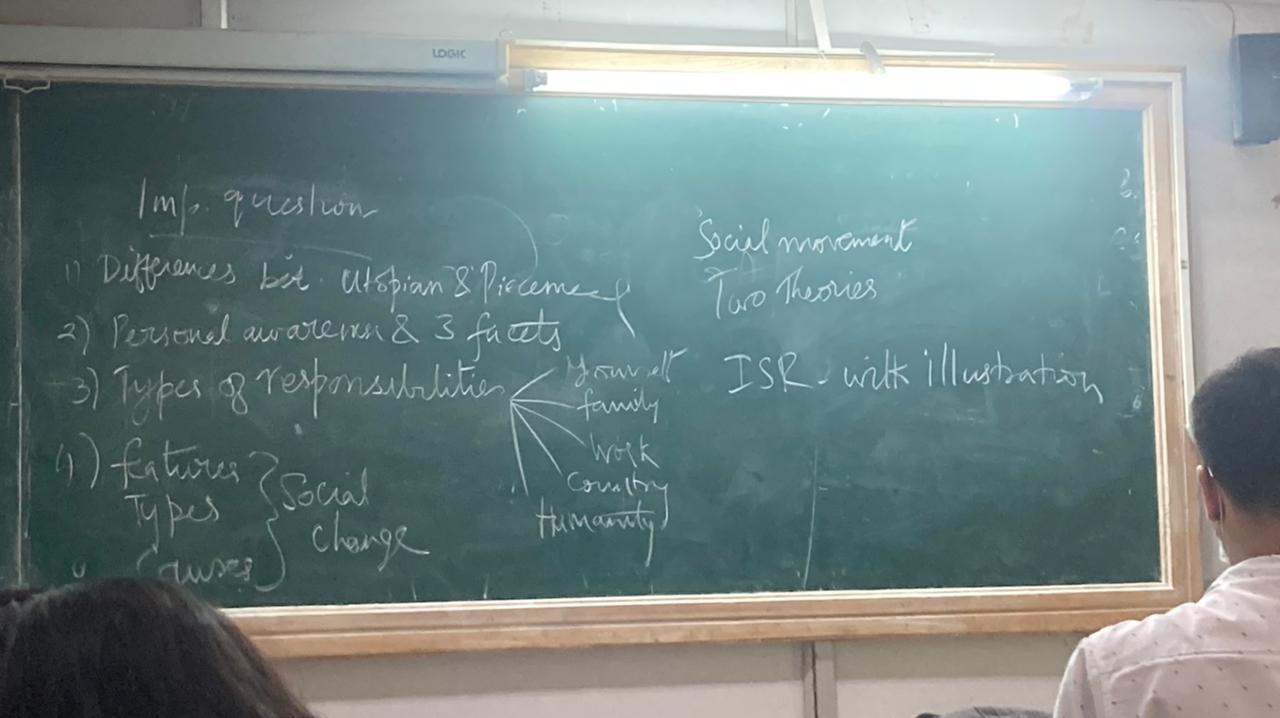 LOGIC
Imp. question
1) Differences bet. Utopian & Piecemeal
2) Personal awareness & 3 facets
3) Types of responsibilities
Yourself
family
Work
Country
Humanity
4) features
Types
Causes
Social
change
Social movement
Two Theories
ISR - with illustration